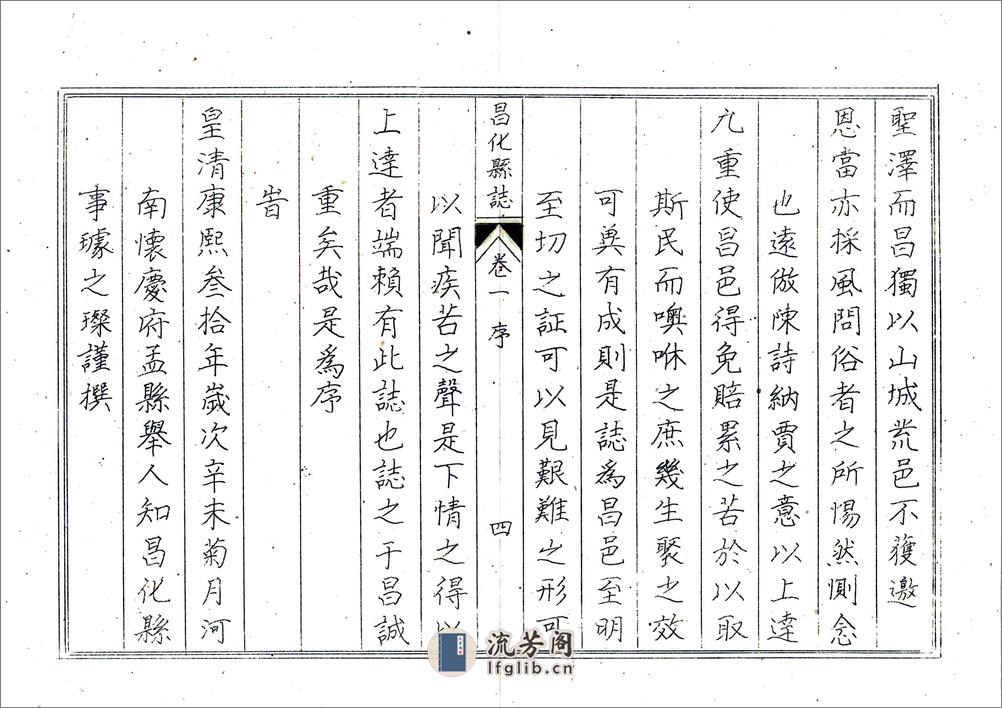 聖澤而昌獨以山城荒邑不獲邀
恩當亦採風問俗者之所惕然惻念
也遠倣陳詩納賈之意以上達
九重使昌邑得免賠累之苦於以取
斯民而噢咻之庶幾生聚之效
可奠有成則是誌為昌邑至明
至切之証可以見艱難之形可
昌化縣誌 卷一 序 四
以聞疾苦之聲是下情之得以
上達者端賴有此誌也誌之于昌誠
重矣哉是為序
旹
皇清康熙叁拾年歲次辛未菊月河
南懷慶府孟縣舉人知昌化縣
事璩之璨謹撰
流芳阁
lfglib.cn